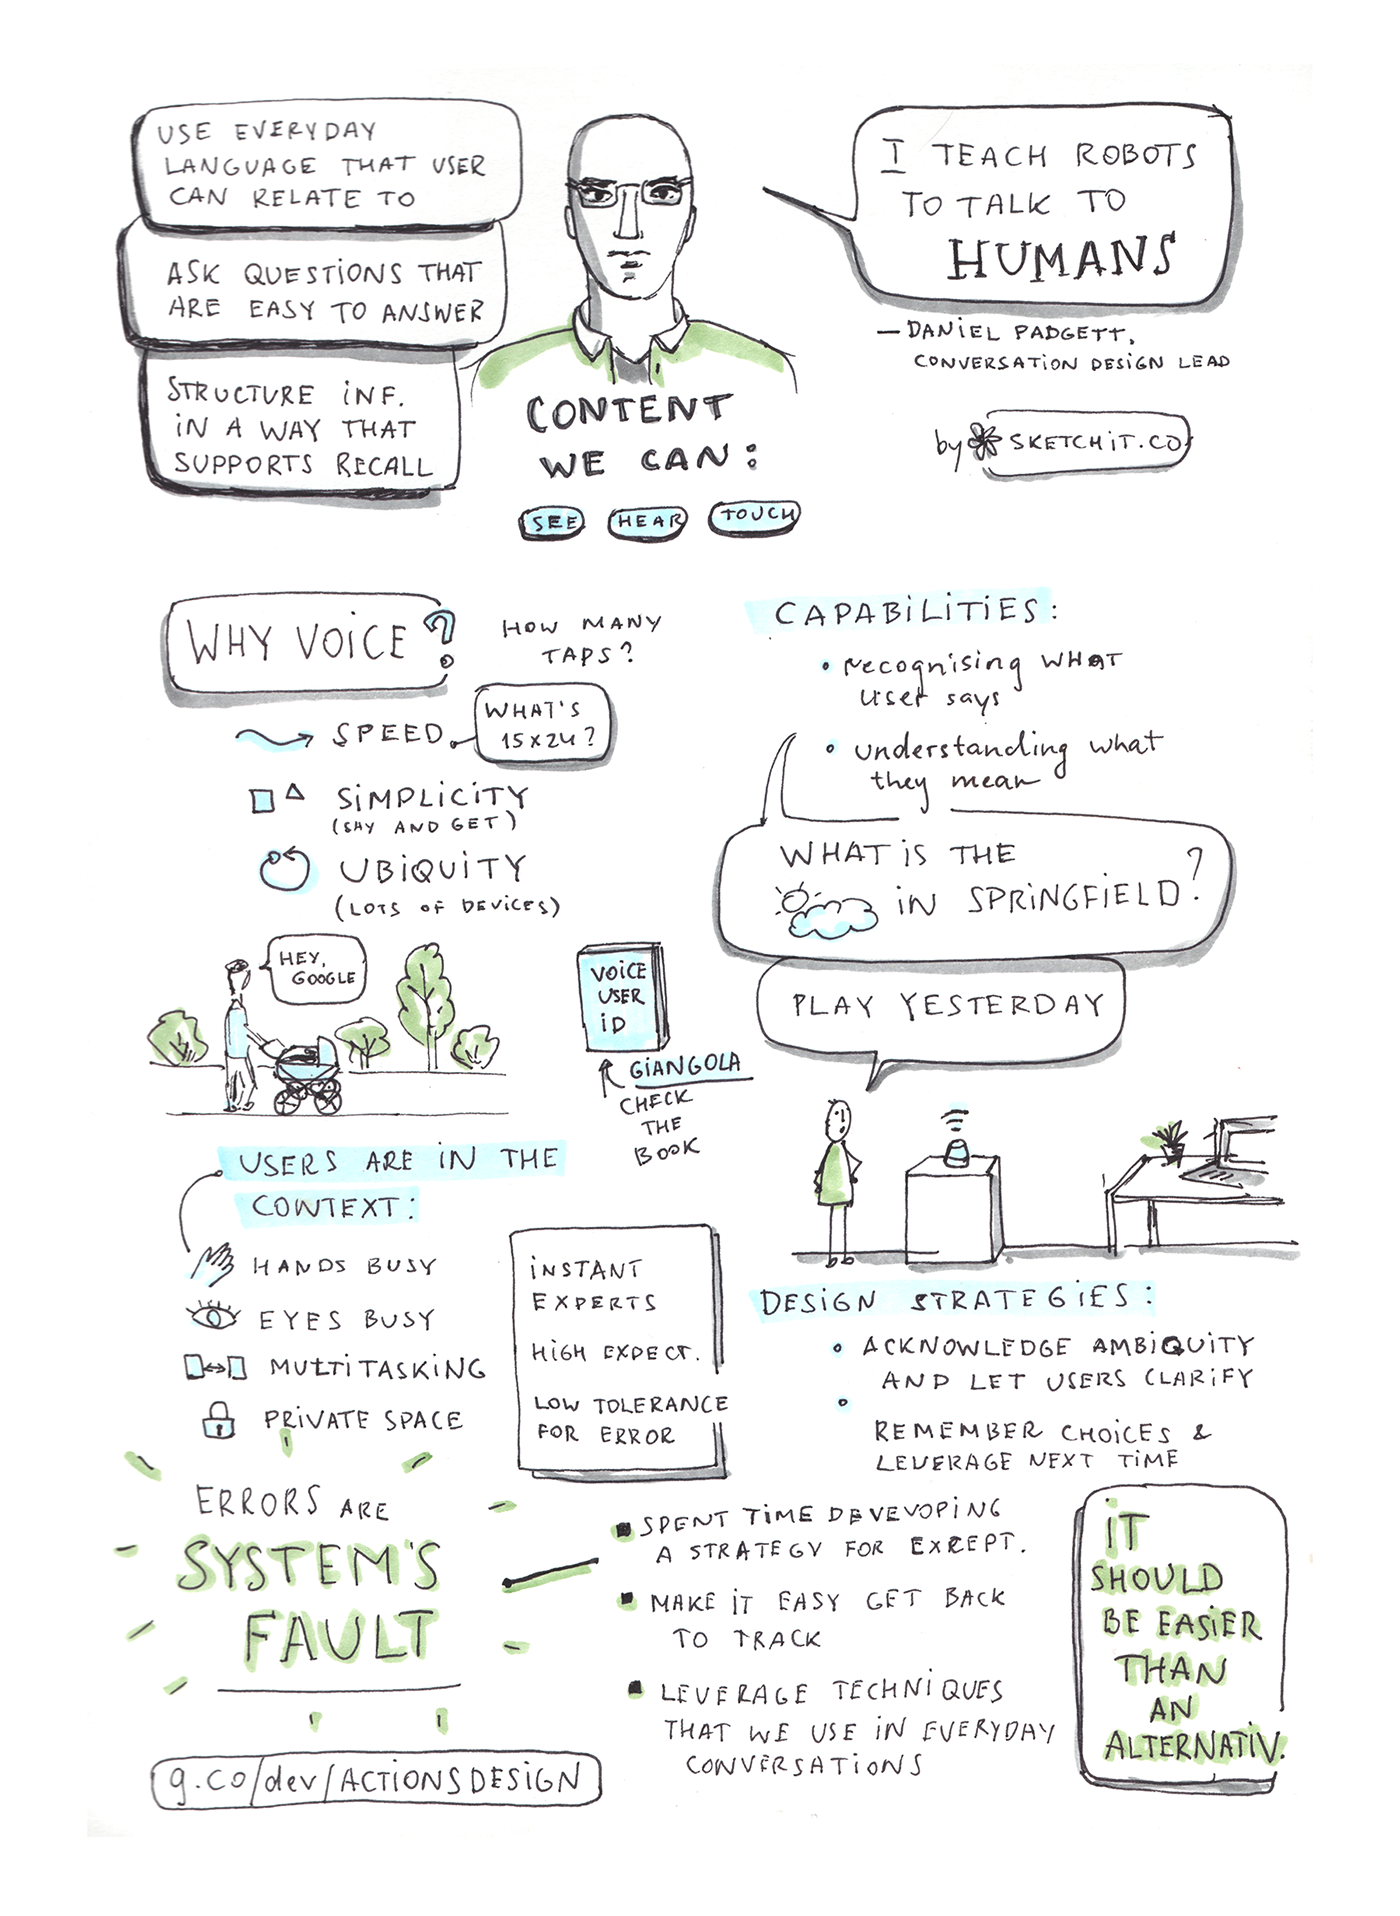 USE EVERYDAY
LANGUAGE THAT USER
CAN RELATE TO
ASK QUESTIONS THAT
ARE EASY TO ANSWER
STRUCTURE INF.
IN A WAY THAT
SUPPORTS RECALL
CONTENT
WE CAN:
SEE HEAR TOUCH
I TEACH ROBOTS
TO TALK TO
HUMANS
— DANIEL PADGETT,
CONVERSATION DESIGN LEAD
by SKETCHIT.CO
WHY VOICE?
HOW MANY
TAPS?
SPEED
WHAT'S
15x24?
SIMPLICITY
(SAY AND GET)
UBIQUITY
(LOTS OF DEVICES)
HEY,
GOOGLE
VOICE
USER
ID
GIANGOLA
CHECK
THE
BOOK
CAPABILITIES:
• recognising WHAT
user says
• understanding what
they mean
WHAT IS THE
IN SPRINGFIELD?
PLAY YESTERDAY
USERS ARE IN THE
CONTEXT:
HANDS BUSY
EYES BUSY
MULTITASKING
PRIVATE SPACE
INSTANT
EXPERTS
HIGH EXPECT.
LOW TOLERANCE
FOR ERROR
DESIGN STRATEGIES:
• ACKNOWLEDGE AMBIQUITY
AND LET USERS CLARIFY
• REMEMBER CHOICES &
LEVERAGE NEXT TIME
ERRORS ARE
SYSTEM'S
FAULT
SPENT TIME DEVEVOPING
A STRATEGY FOR EXCEPT.
MAKE IT EASY GET BACK
TO TRACK
LEVERAGE TECHNIQUES
THAT WE USE IN EVERYDAY
CONVERSATIONS
IT
SHOULD
BE EASIER
THAN
AN
ALTERNATIV.
g.co/dev/ACTIONSDESIGN